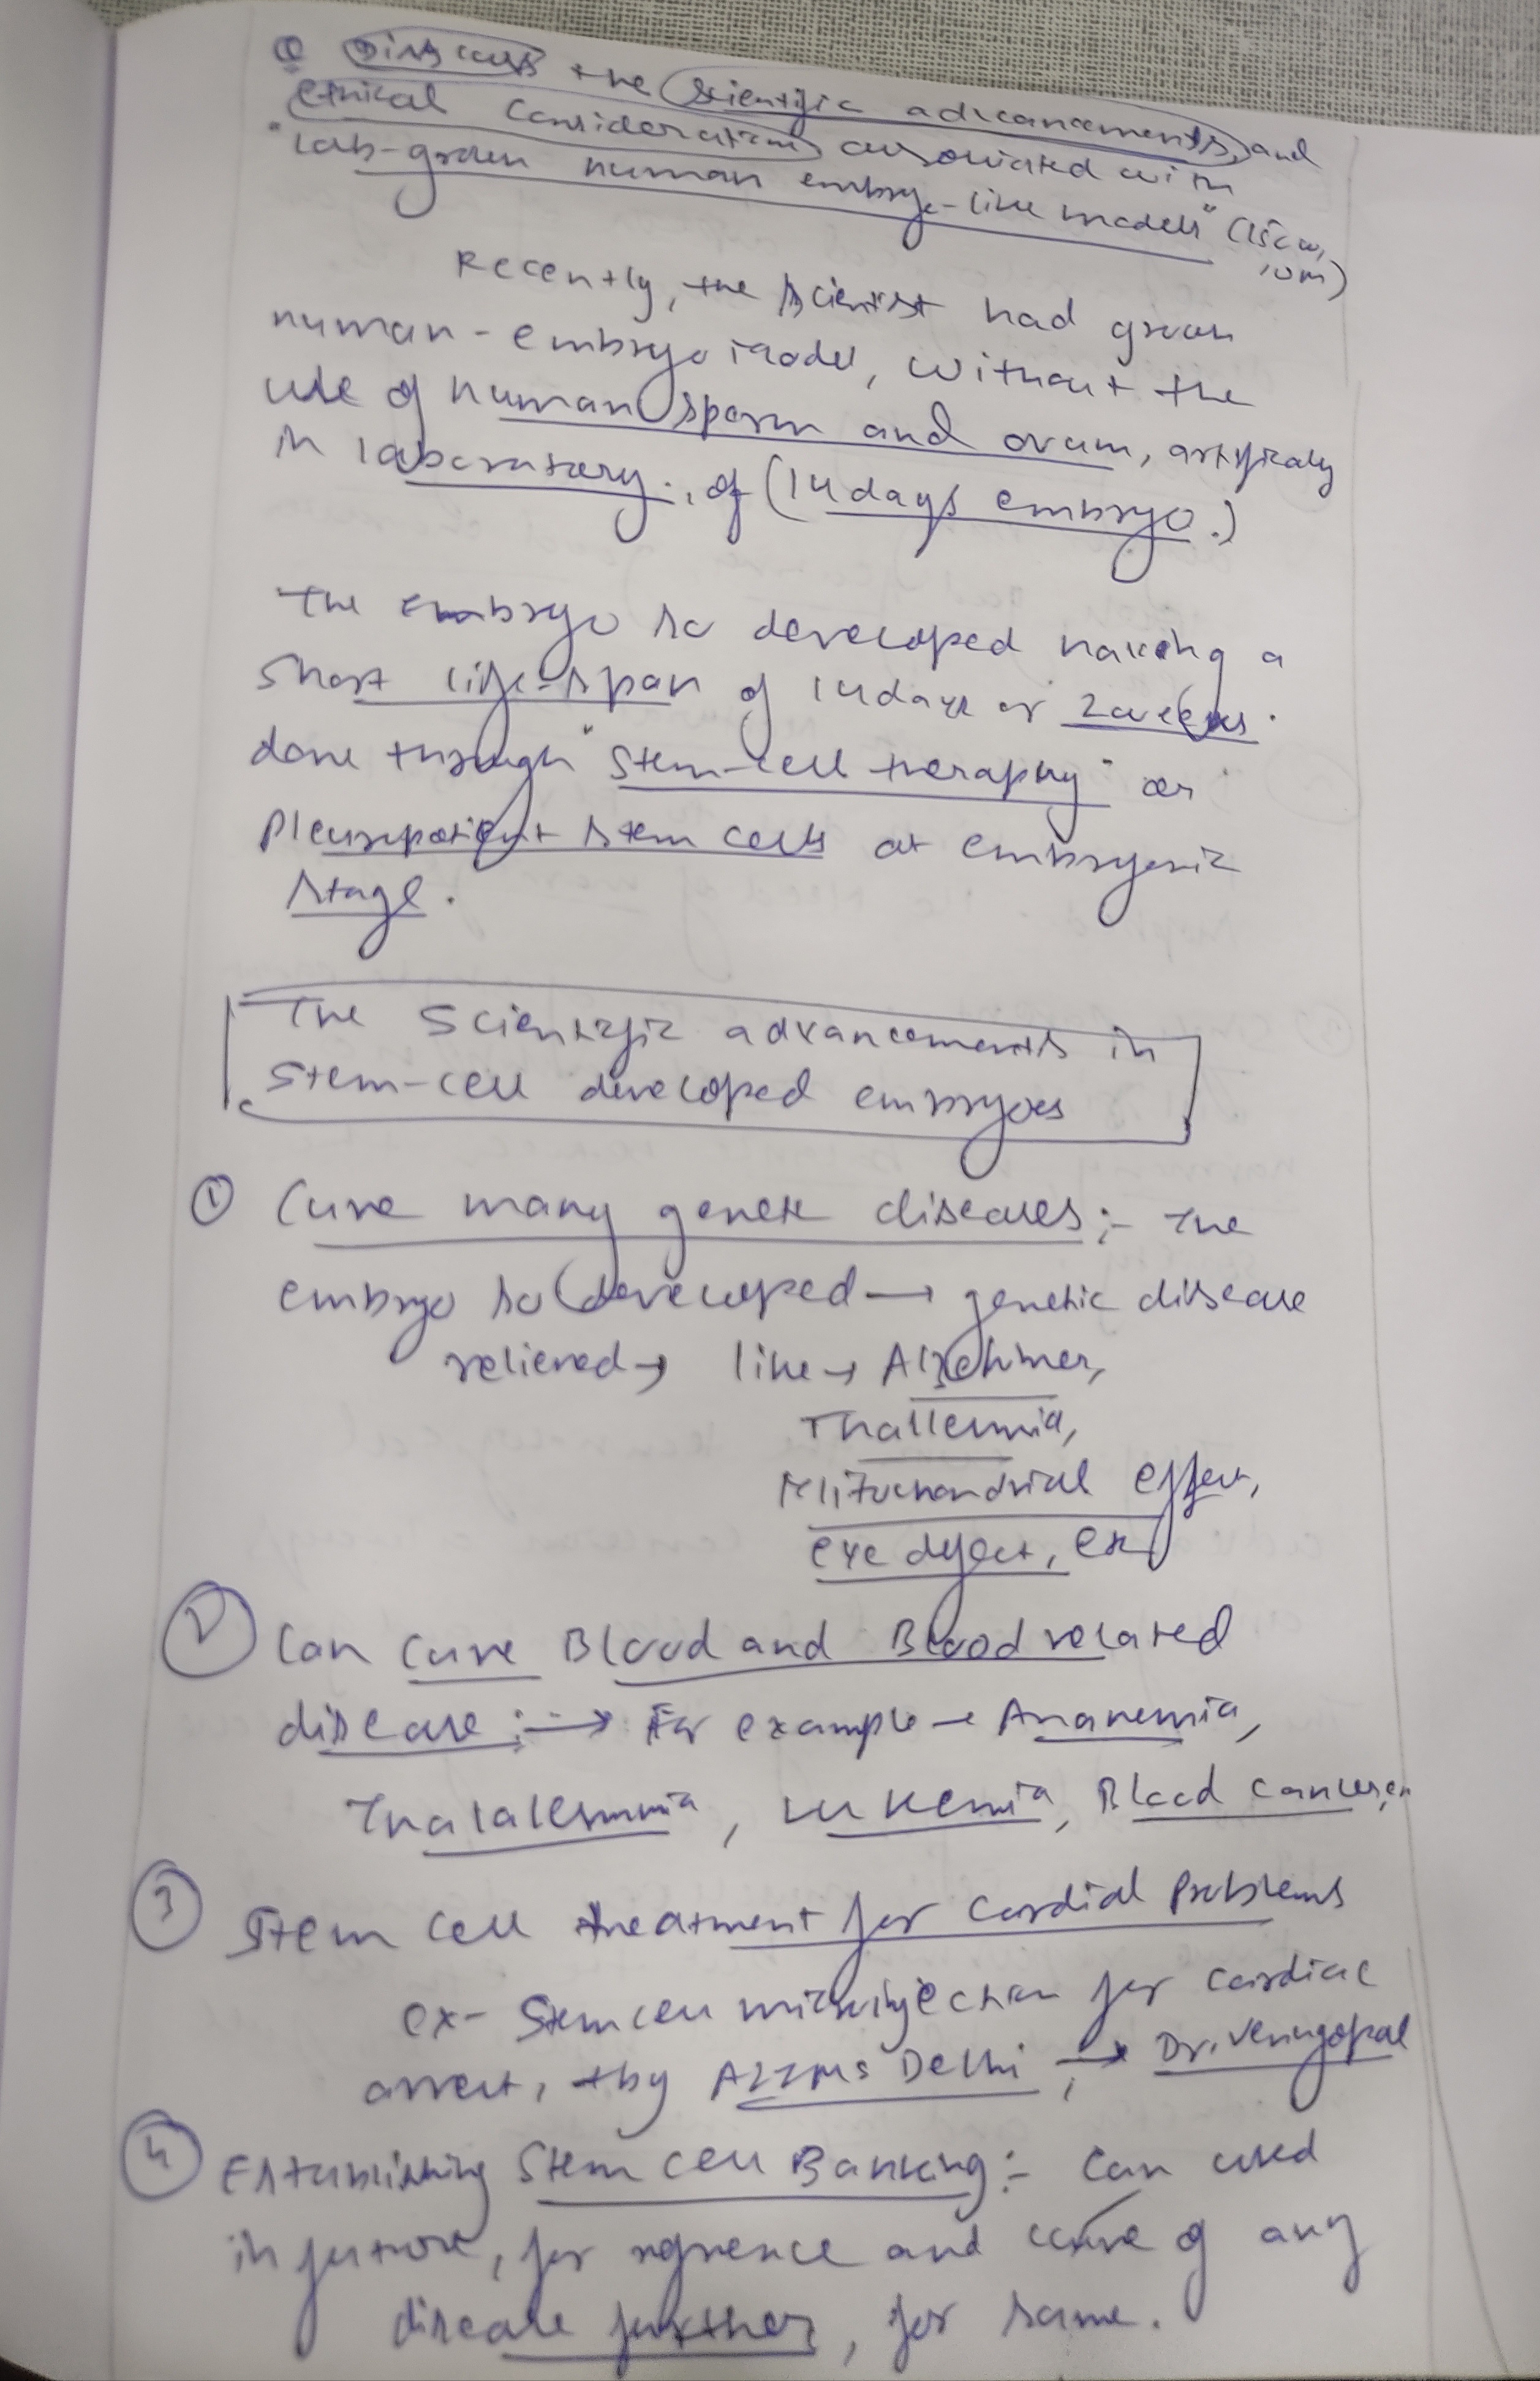 Q Discuss the scientific advancements, and
ethical considerations associated with
"lab-grown human embryo-like models" (150w,
10m)
Recently, the scientist had grown
human-embryo model, without the
use of human sperm and ovum, artificialy
in laboratory., of (14days embryo.)
The embryo so developed having a
short life-span of 14days or 2weeks.
done through "stem-cell theraphy" or
Pleuripotient stem cells at embryonic
stage.
The Scientific advancements in
stem-cell developed embryoes
① Cure many genetic diseases:- The
embryo so developed → genetic disease
relieved → like → Alzehimer,
Thallesmia,
Mitochondrial effect,
eye defect, etc
② Can Cure Blood and Blood related
disease:→ For example → Ananemia,
Thalalesmmia, Lukemia, Blood cancer,
③ Stem cell treatment for Cardial Problems
ex- Stem cell microinjection for Cardiac
arrest, by AIIMS Delhi ; → Dr. Venugopal
④ Establishing Stem cell Banking:- Can used
in future, for refrence and cure of any
disease further, for same.